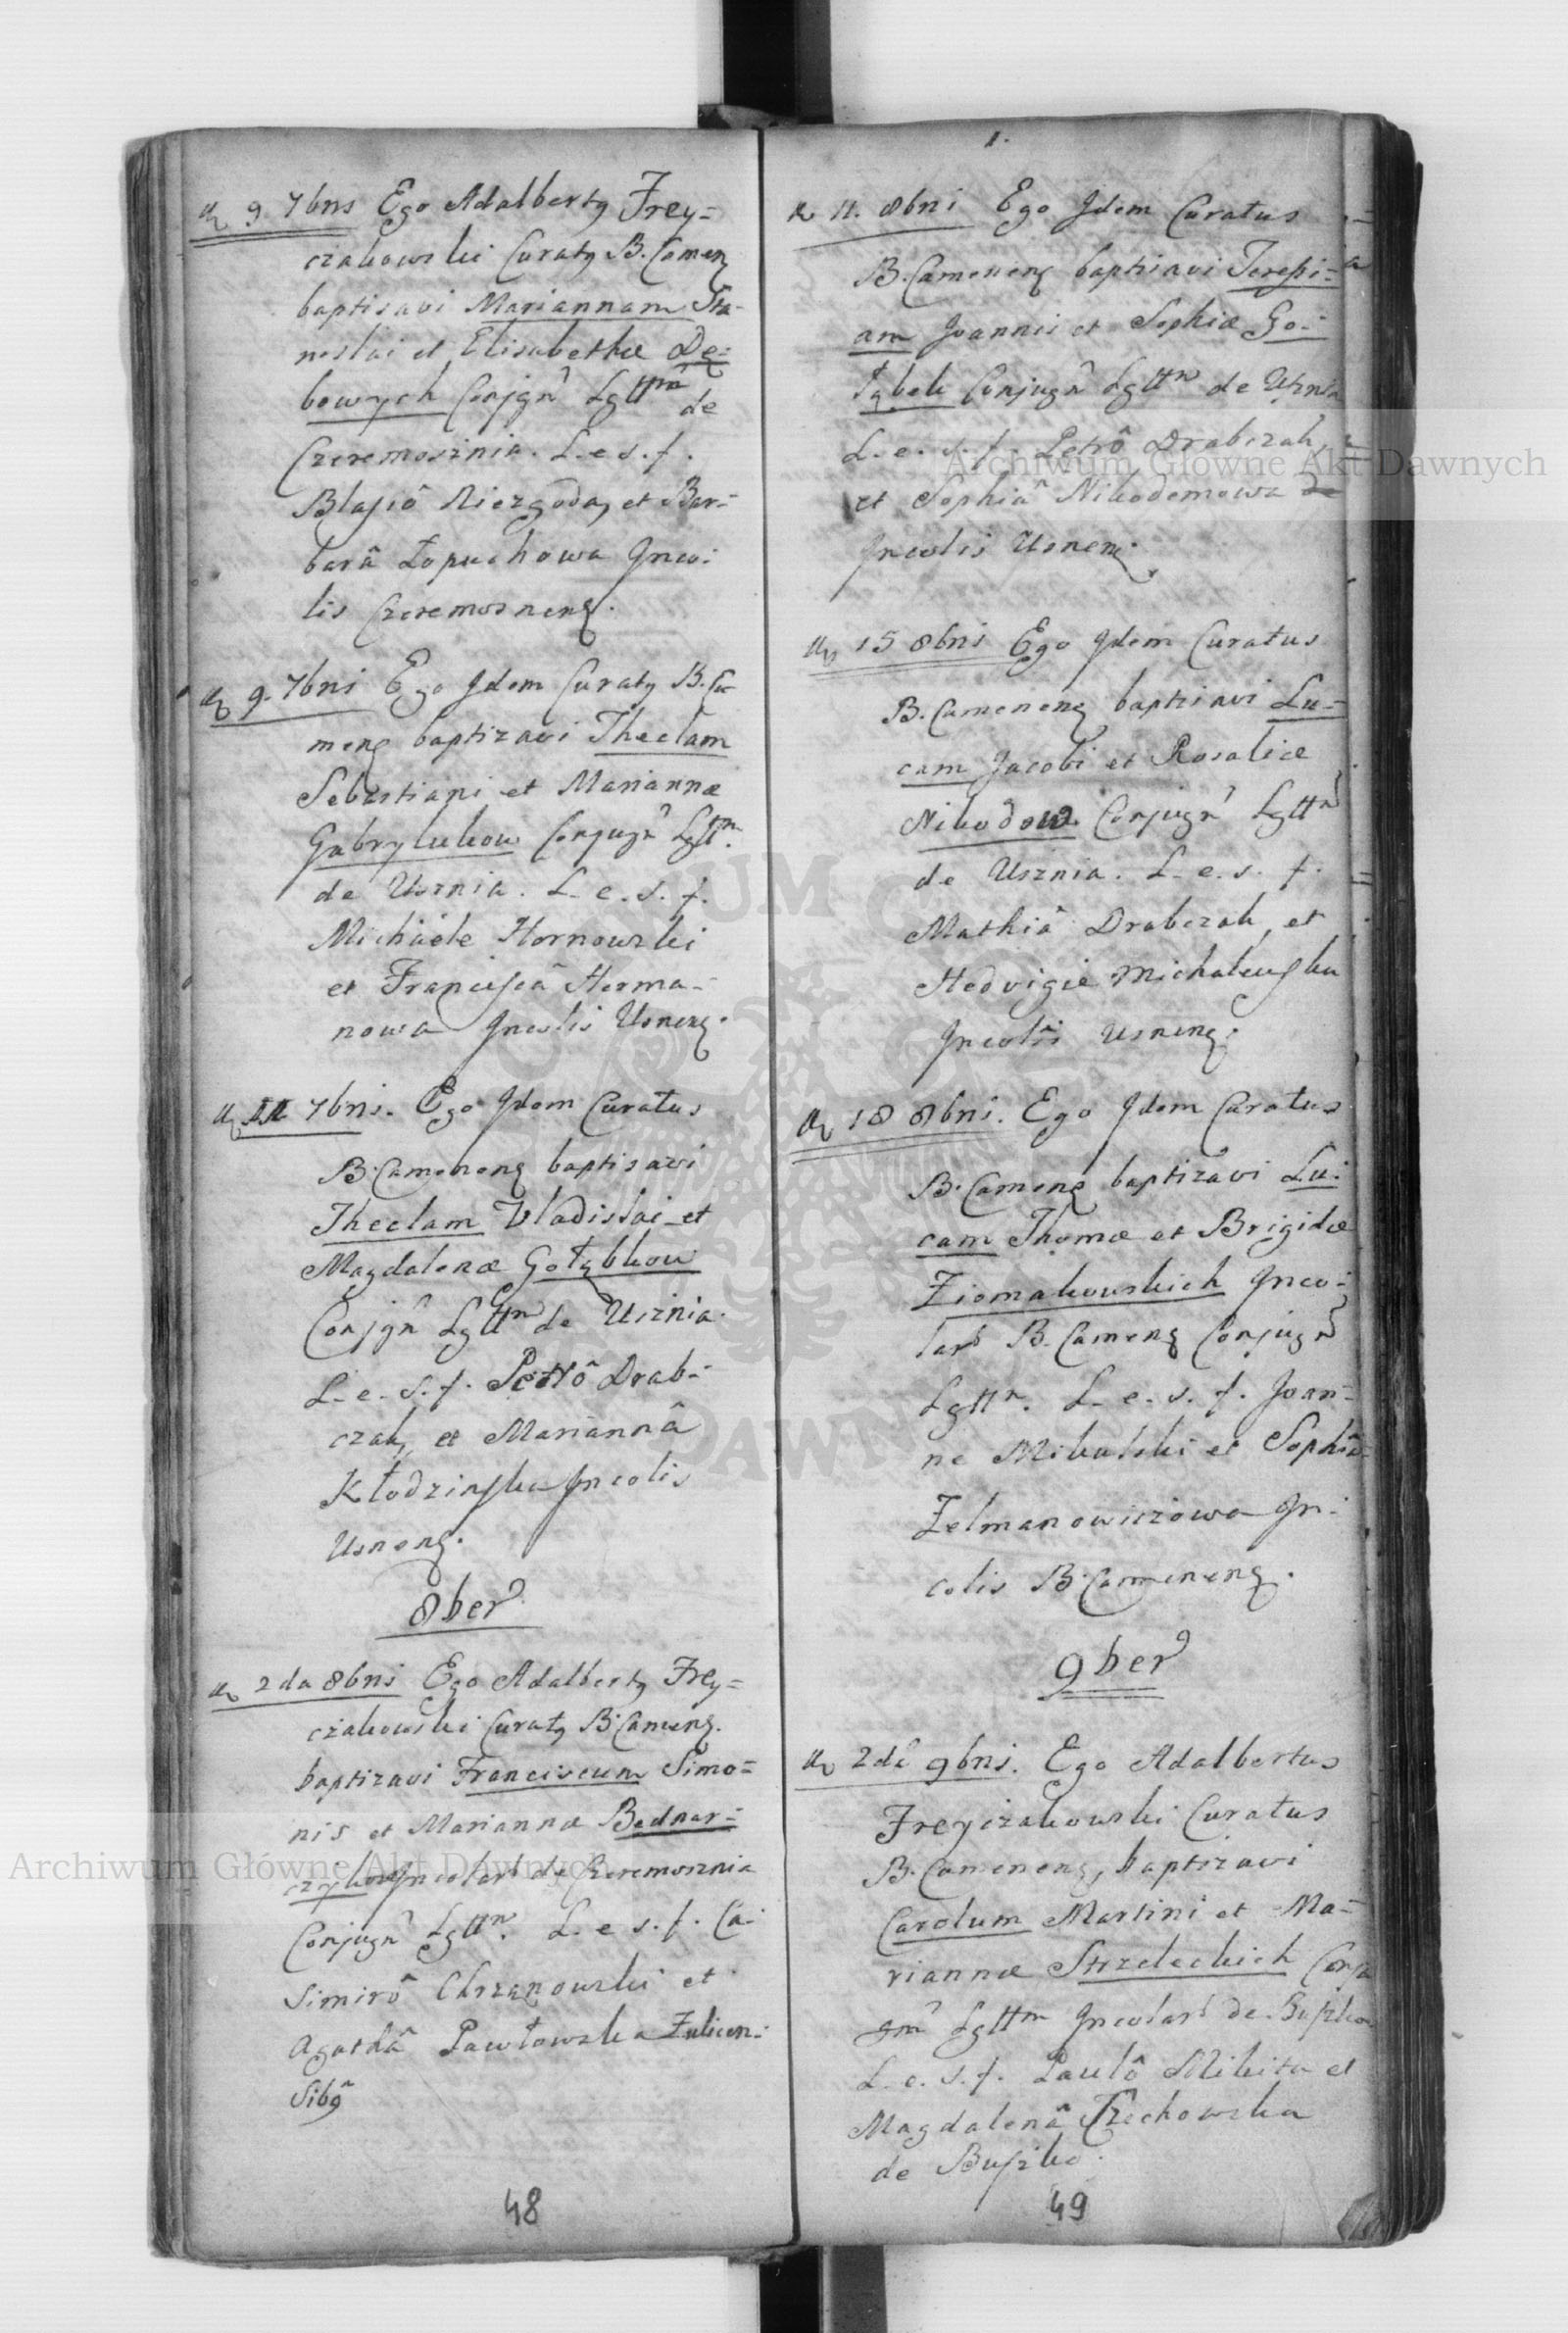 9. 7bris Ego Adalberty Frey=
czakowski Curaty B. Camen
baptisavi Mariannam Sta-
nislai et Elisabethæ Dę=
bowych Conjgn Lgttm de
Czeremosznia. L. e s. f.
Blasiô Niezgoda, et Bar=
barâ Łopuchowa Jnco:
lis Czeremosneng.
9. 7bris Ego Jdem Curaty B. Ca-
meng baptizavi Theclam
Sebastiani et Mariannæ
Gabrylukow Conjugn Lgttm.
de Usznia. L. e. s. f.
Michaële Hornowski
et Franciscâ Herma-
nowa Jncolis Usneng.
7bris. Ego Jdem Curatus
B. Cameneng baptisavi
Theclam Vladislai et
Magdalenæ Gołąbkow
Conjgn Lgttm de Usznia.
L. e. s. f. Petrô Drab=
czak, et Mariannâ
Kłodzinska Jncolis
Usneng.
8ber
2da 8bris Ego Adalberty Frey=
czakowski Curaty B. Cameng.
baptizavi Franciscum Simo=
nis et Mariannæ Bednar=
czykow Jncolar de Czeremosznia
Conjugn Lgttm. L. e s. f. Ca-
simirô Chrzanowski et
Agathâ Pawłowska
48
11. 8bris Ego Jdem Curatus
B. Cameneng baptizavi Teresi=
am Joannis et Sophiæ Go=
łąbek Conjugn Lgttm de Usznia
L. e. s. f. Petrô Drabczak,
et Sophiâ Nikodemowa de
Jncolis Usneng.
15 8bris Ego Jdem Curatus
B. Cameneng baptizavi Lu=
cam Jacobi et Rosaliæ
Nikodow Conjugn Lgttm
de Usznia. L. e. s. f.
Mathiâ Drabczak, et
Hedvigie Michaleuska
Jncolis Usneng.
18 8bris. Ego Jdem Curatus
B. Cameng baptizavi Lu=
cam Thomæ et Brigidæ
Ziomakowskich Jnco=
lar B. Cameng Conjugn
Lgttm. L. e. s. f. Joan=
ne Mikulski et Sophiâ
Zelmanowiczowa Jn=
colis B. Cameneng.
9ber
2dâ 9bris. Ego Adalbertus
Freyczakowski Curatus
B. Cameneng, baptizavi
Carolum Martini et Ma=
riannæ Strzeleckich Conju
gn Lgttm Jncolar de Buszko
L. e. s. f. Paulô Mikita et
Magdalenâ Czechowska
de Buszko.
49
Archiwum Główne Akt Dawnych
Archiwum Główne Akt Dawnych